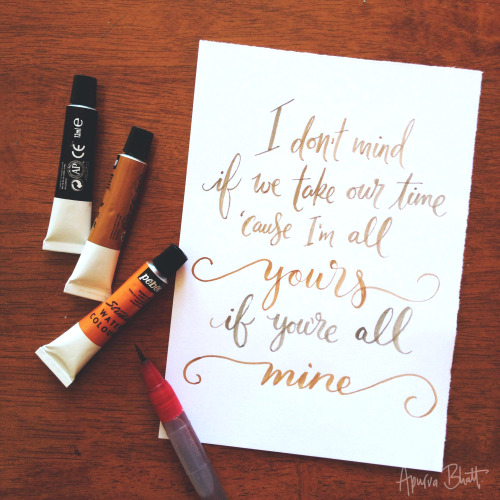 I don't mind
if we take our time
'cause I'm all
yours
if you're all
mine
12ml e
CE
AP
pébéo
WATER
COLOUR
Apurva Bhatt